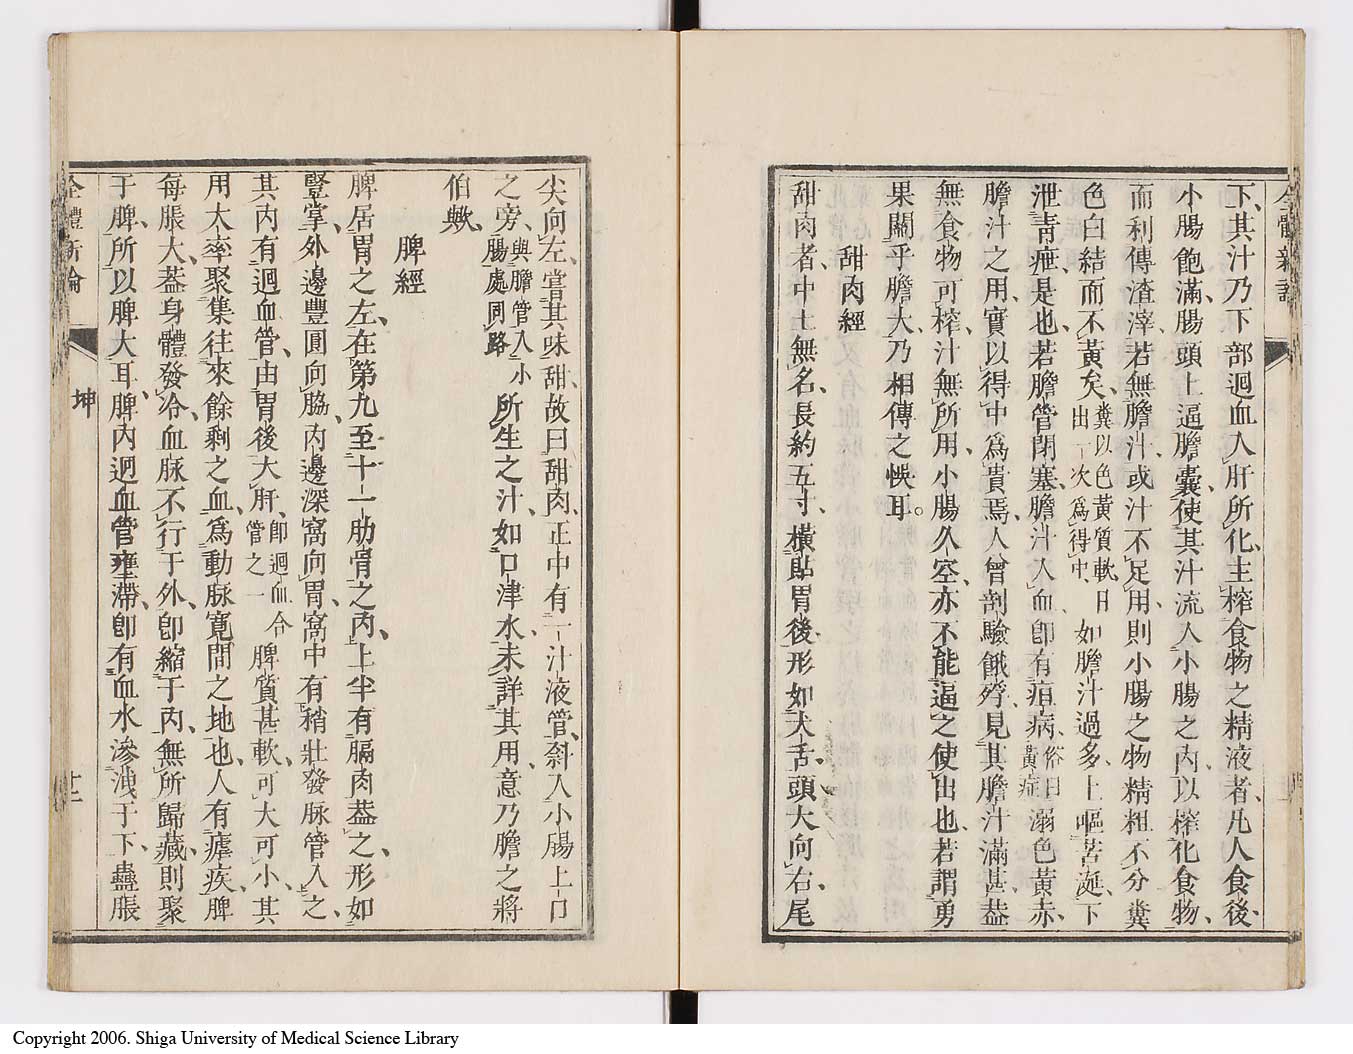 下其汁乃下部迴血入肝所化主榨食物之精液者凡人食後
小腸飽滿腸頭上逼膽囊使其汁流入小腸之內以榨化食物
而利傳渣滓若無膽汁或汁不足用則小腸之物精粗不分糞
色白結而不黃矣糞以色黃質軟日出一次爲得中如膽汁過多上嘔苦涎下
泄靑疸是也若膽管閉塞膽汁入血卽有疸病俗曰黃症溺色黃赤
膽汁之用實以得中爲貴焉人曾剖驗餓殍見其膽汁滿甚葢
無食物可榨汁無所用小腸久空亦不能逼之使出也若謂勇
果關乎膽大乃相傳之悞耳。
甜肉經
甜肉者中土無名長約五寸橫貼胃後形如犬舌頭大向右尾
全體新論
尖向左嘗其味甜故曰甜肉正中有一汁液管斜入小腸上口
之旁與膽管入小腸處同路所生之汁如口津水未詳其用意乃膽之將
伯歟
脾經
脾居胃之左在第九至十一肋骨之內上半有膈肉葢之形如
豎掌外邊豐圓向脇內邊深窩向胃窩中有稍壯發脉管入之
其內有迴血管由胃後大肝卽迴血合管之一脾質甚軟可大可小其
用大率聚集往來餘剩之血爲動脉寬閒之地也人有瘧疾脾
每脹大葢身體發冷血脉不行于外卽縮于內無所歸藏則聚
于脾所以脾大耳脾內迴血管壅滯卽有血水滲洩于下蠱脹
全體新論
坤
Copyright 2006. Shiga University of Medical Science Library